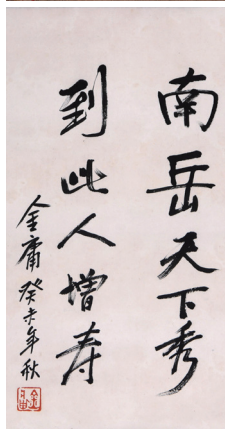 南岳天下秀
到此人增寿
金庸 癸未年秋